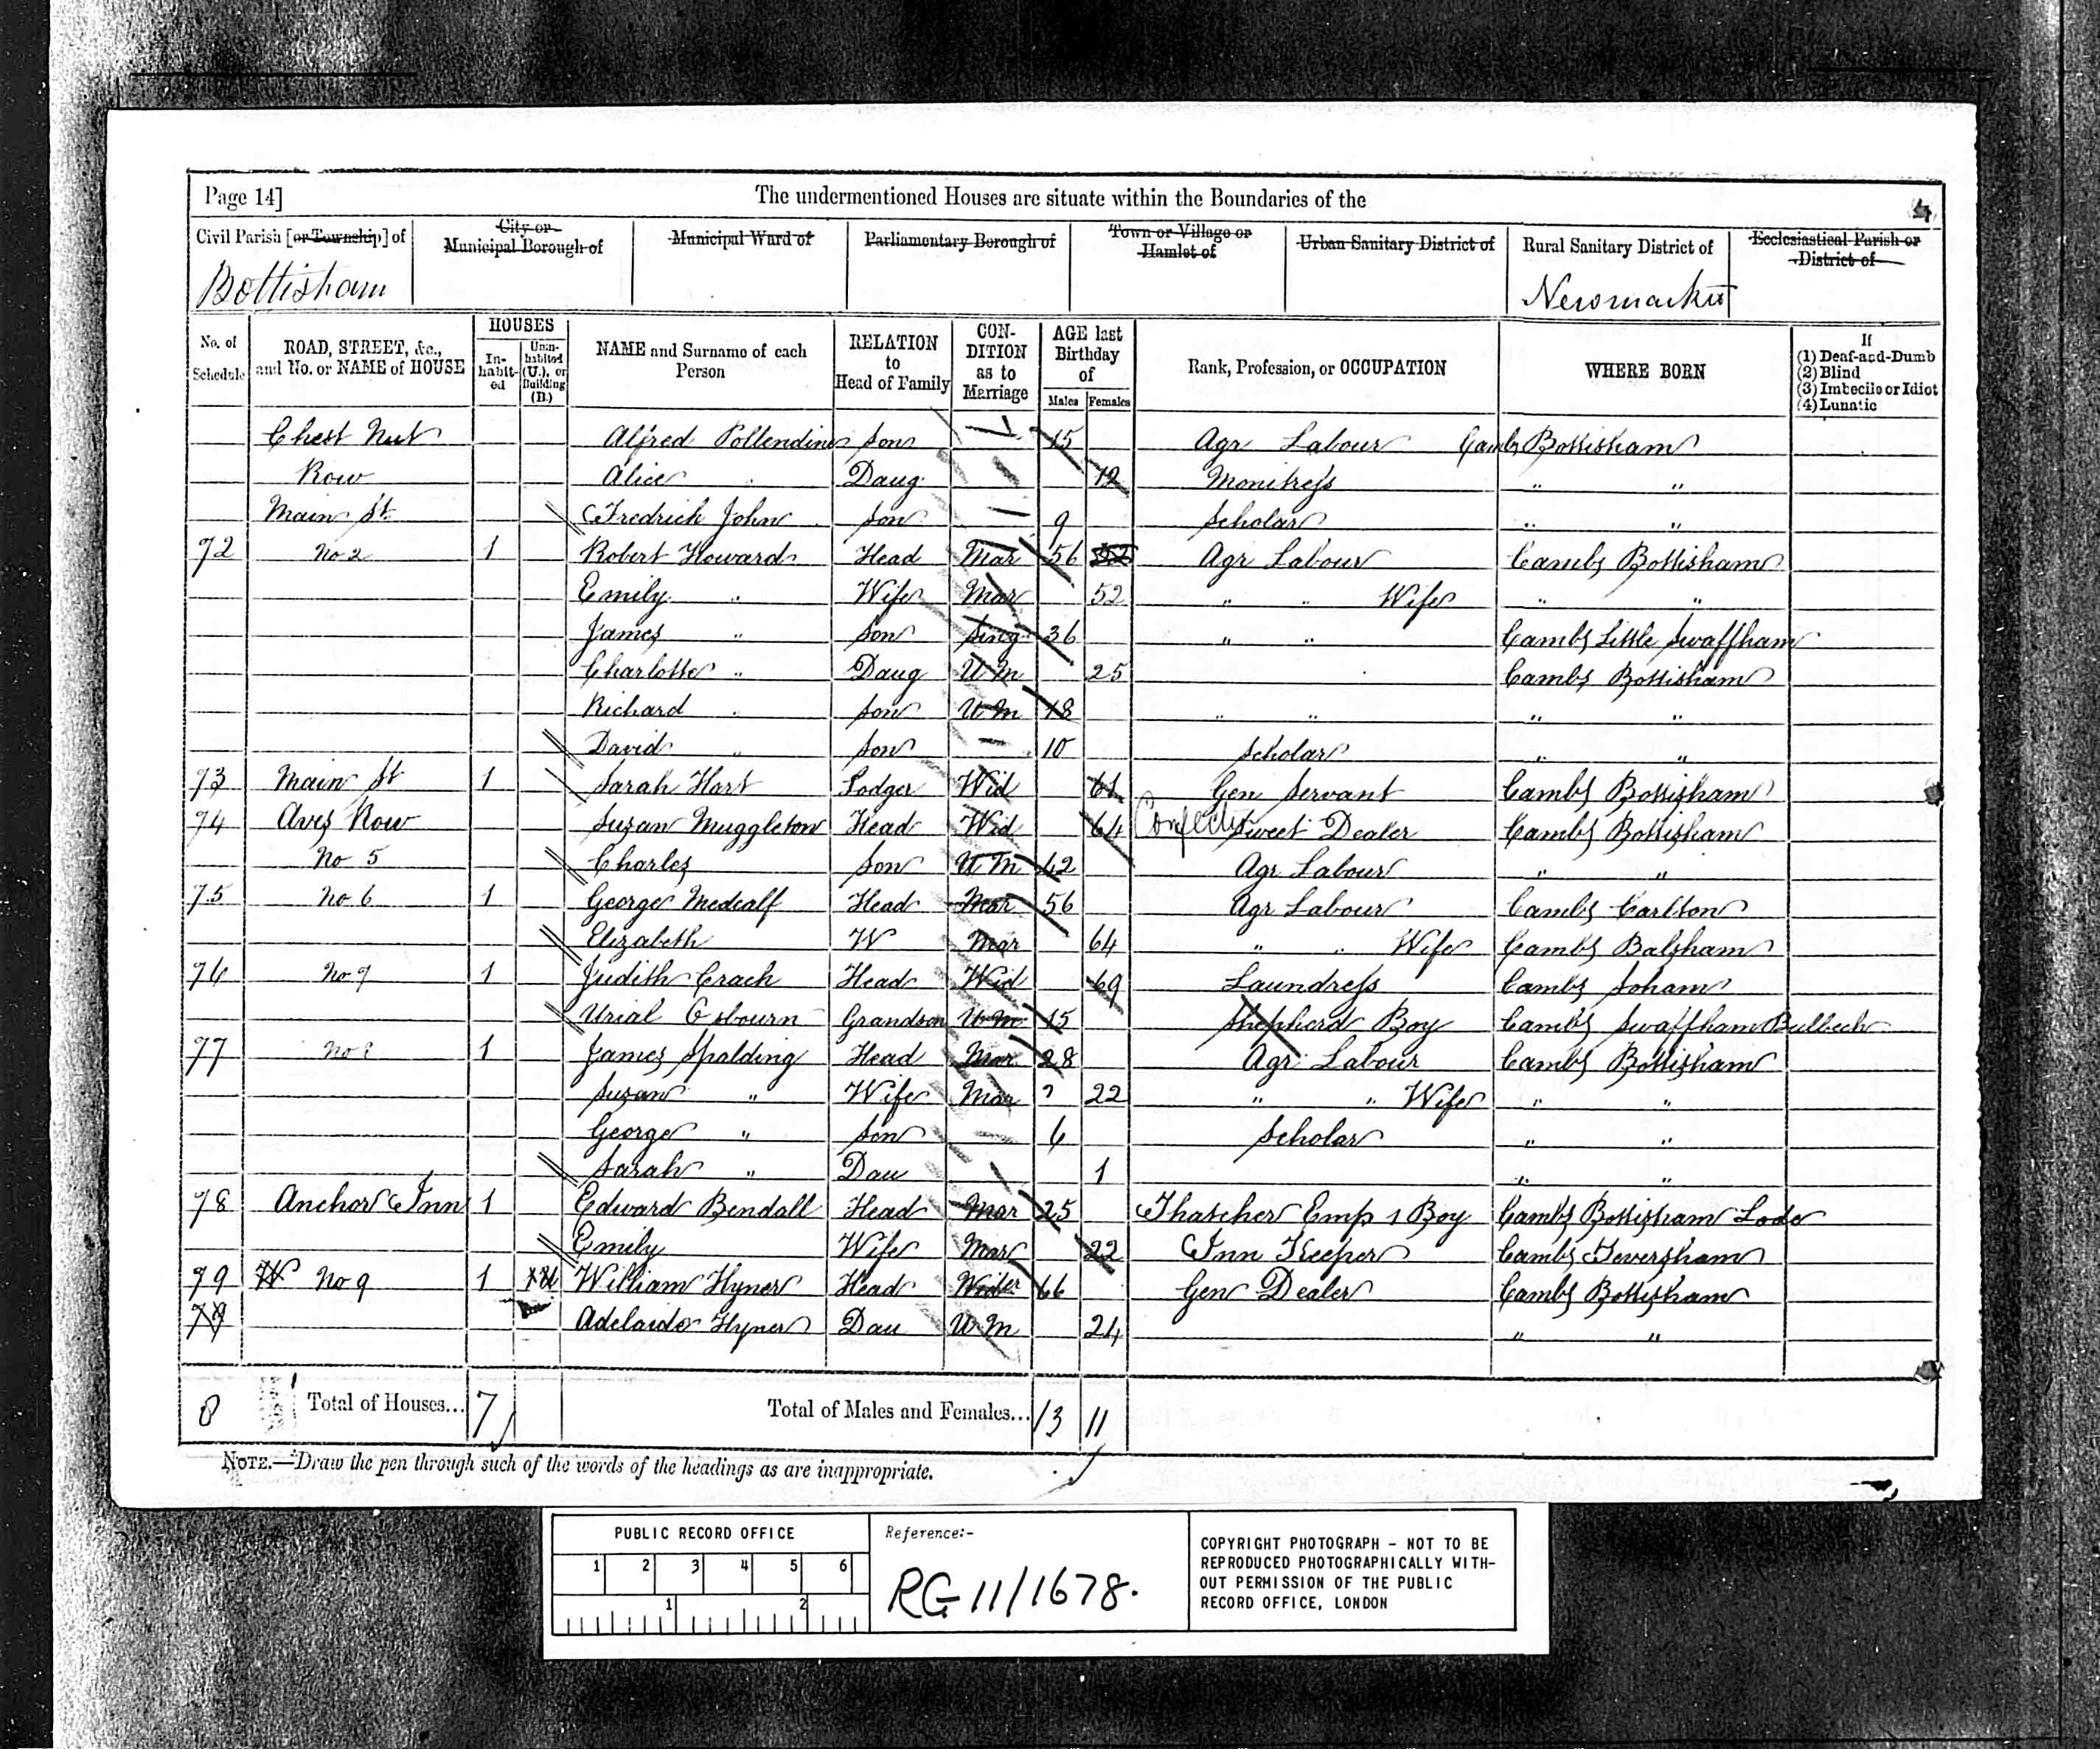 Page 14] The undermentioned Houses are situate within the Boundaries of the
Civil Parish [or Township] of City or Municipal Borough of Municipal Ward of Parliamentary Borough of Town or Village or Hamlet of Urban Sanitary District of Rural Sanitary District of Ecclesiastical Parish or District of
Bottisham Newmarket
No. of Schedule ROAD, STREET, &c., and No. or NAME of HOUSE HOUSES In-habit-ed Unin-habited (U.), or Building (B.) NAME and Surname of each Person RELATION to Head of Family CON-DITION as to Marriage AGE last Birthday of Males Females Rank, Profession, or OCCUPATION WHERE BORN If (1) Deaf-and-Dumb (2) Blind (3) Imbecile or Idiot (4) Lunatic
Chest Nut Alfred Pollendine Son 15 Agr Labour Cambs Bottisham
Row Alice Daug 12 Monitress " "
Main St Fredrick John Son 9 Scholar " "
72 No 2 1 Robert Howard Head Mar 56 52 Agr Labour Cambs Bottisham
Emily " Wife Mar 52 " " Wife " "
James " Son Sing 36 " " Cambs Little Swaffham
Charlotte " Daug U M 25 Cambs Bottisham
Richard " Son U M 18 " " " "
David " Son 10 Scholar " "
73 Main St 1 Sarah Hart Lodger Wid 61 Gen Servant Cambs Bottisham
74 Aves Row Suzan Muggleton Head Wid 64 Confectr Sweet Dealer Cambs Bottisham
No 5 Charles Son U M 42 Agr Labour " "
75 No 6 1 George Medcalf Head Mar 56 Agr Labour Cambs Carlton
Elizabeth W Mar 64 " " Wife Cambs Balsham
76 No 7 1 Judith Crack Head Wid 69 Laundress Cambs Soham
Urial Osbourn Grandson U M 15 Shepherd Boy Cambs Swaffham Bulbeck
77 No 1 James Spalding Head Mar 28 Agr Labour Cambs Bottisham
Suzan " Wife Mar 22 " " Wife " "
George " Son 6 Scholar " "
Sarah " Dau 1 " "
78 Anchor Inn 1 Edward Bendall Head Mar 25 Thatcher Emp 1 Boy Cambs Bottisham Lode
Emily Wife Mar 22 Inn Keeper Cambs Teversham
79 No 9 1 William Hyner Head Wider 66 Gen Dealer Cambs Bottisham
79 Adelaide Hyner Dau U M 24 " "
8 Total of Houses... 7 Total of Males and Females... 13 11
NOTE.—Draw the pen through such of the words of the headings as are inappropriate.
PUBLIC RECORD OFFICE
1 2 3 4 5 6
1 2
Reference:-
RG 11/1678.
COPYRIGHT PHOTOGRAPH - NOT TO BE
REPRODUCED PHOTOGRAPHICALLY WITH-
OUT PERMISSION OF THE PUBLIC
RECORD OFFICE, LONDON